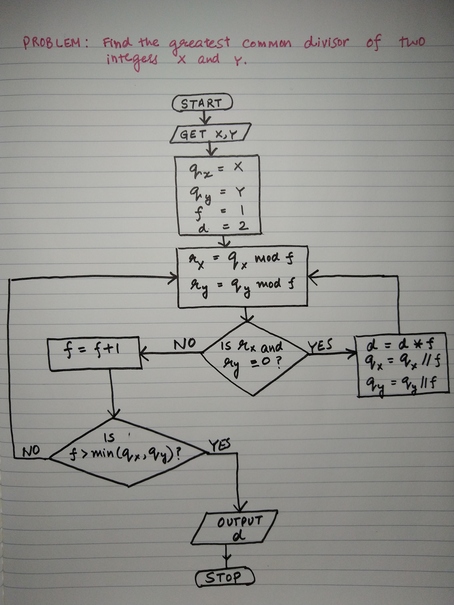 PROBLEM: Find the greatest common divisor of two
integers X and Y.
START
GET X,Y
qx = X
qy = Y
f = 1
d = 2
rx = qx mod f
ry = qy mod f
Is rx and
ry = 0?
NO
YES
f = f+1
d = d * f
qx = qx // f
qy = qy // f
Is
f > min(qx, qy)?
NO
YES
OUTPUT
d
STOP